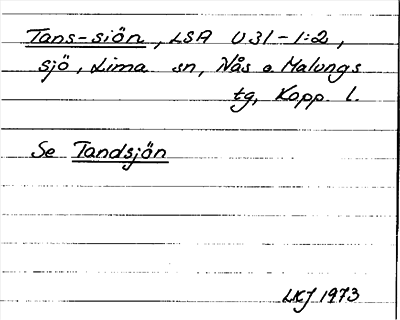 Tans-siön, LSA U31-1:2,
sjö, Lima sn, Nås o. Malungs
tg, Kopp. l.
Se Tandsjön
LKJ 1973